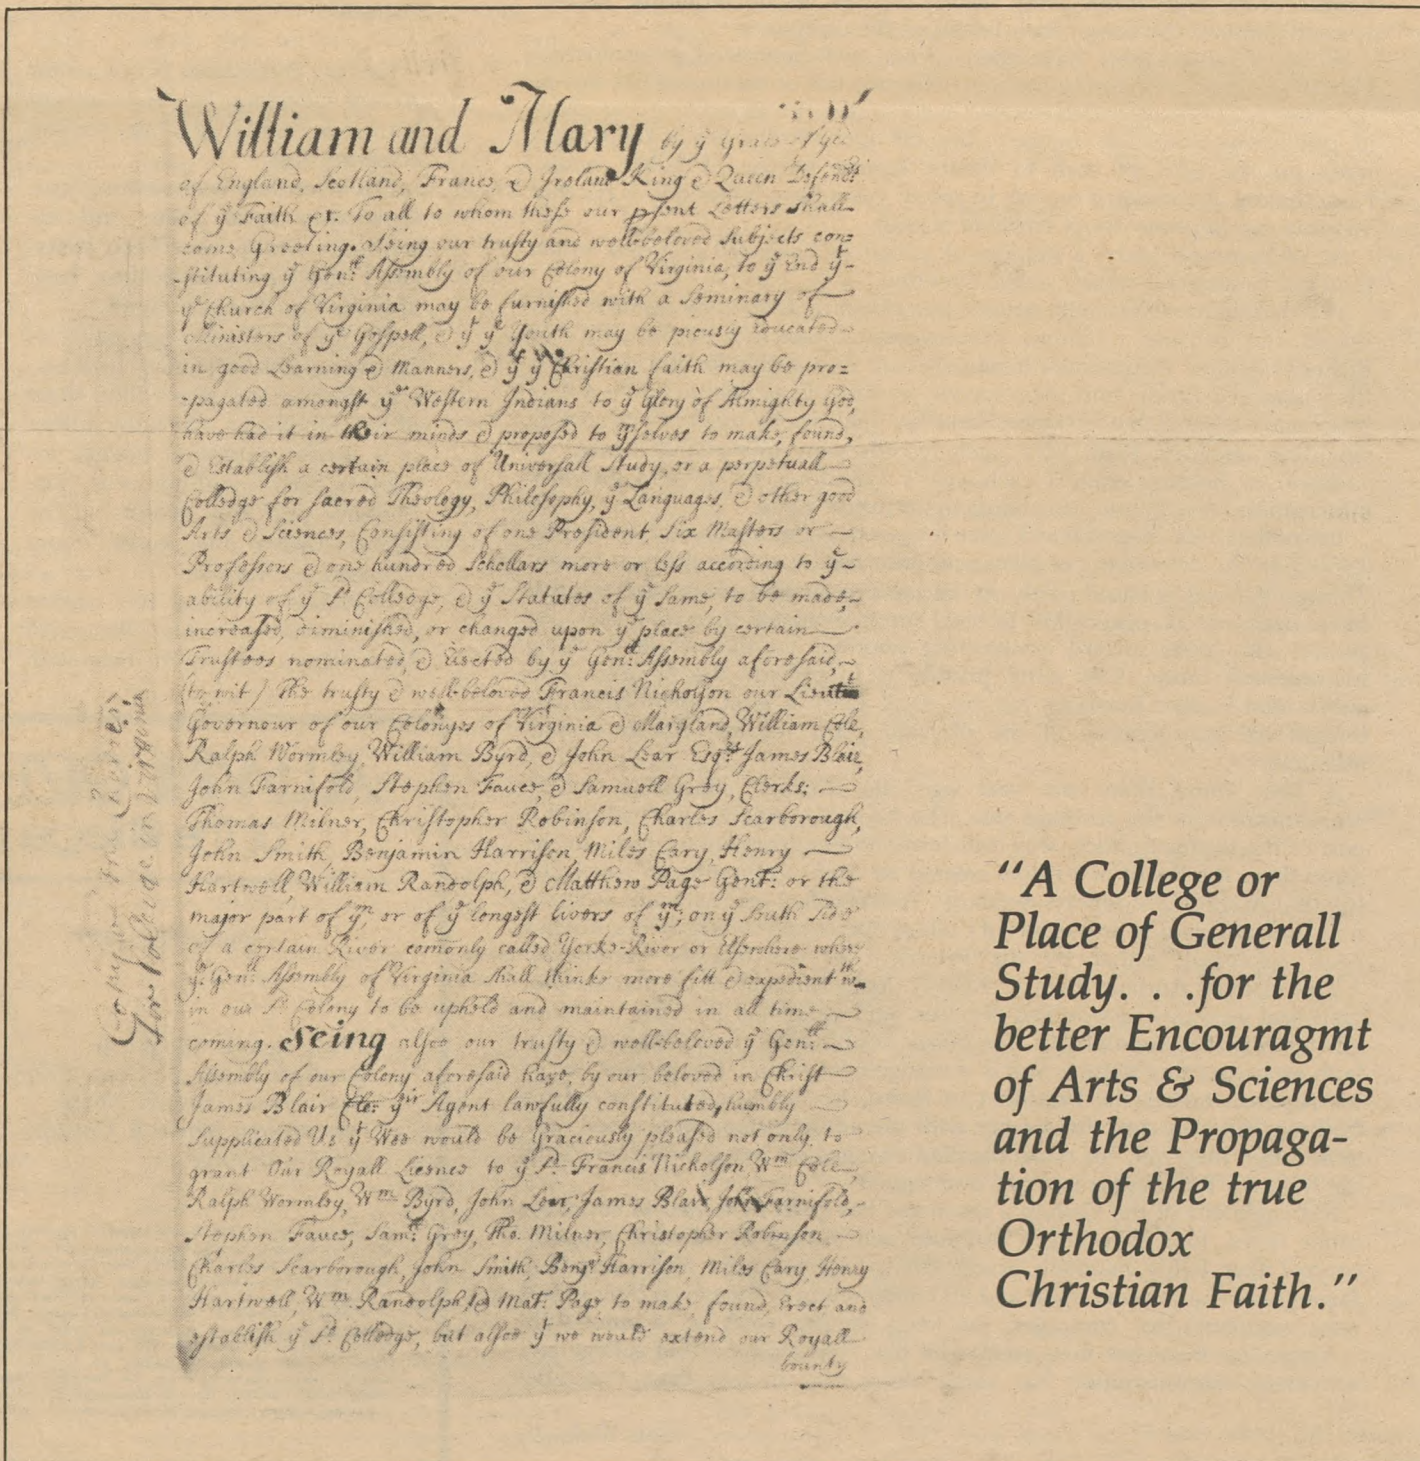 William and Mary by yͤ Grace of God
of England, Scotland, France, & Ireland King & Queen Defendrs
of yͤ Faith &c. To all to whom these our psent Letters shall
come Greeting. Seing our trusty and well-beloved Subjects con=
-stituting yͤ Genll Assembly of our Colony of Virginia, to yͤ End yͭ
yͤ Church of Virginia may be furnished with a Seminary of
Ministers of yͤ Gospell, & yͭ yͤ Youth may be piously Educated
in good Learning & Manners, & yͭ yͤ Christian faith may be pro=
-pagated amongst yͤ Western Indians to yͤ Glory of Almighty God,
have had it in their minds & proposed to yͫselves to make, found,
& Establish a certain place of Universall Study, or a perpetuall
Colledge for sacred Theology, Philosophy, yͤ Languages, & other good
Arts & Sciences, Consisting of one President, Six Masters or
Professors & one hundred Schollars more or less according to yͤ
ability of yͤ sd Colledge, & yͤ Statutes of yͤ same, to be made,
increased, diminished, or changed upon yͤ place by certain
Trustees nominated, & Elected by yͤ Genll Assembly aforesaid,
(to wit) The trusty & well-beloved Francis Nicholson our Lieutt
Governour of our Colonyes of Virginia & Maryland, William Cole,
Ralph Wormley, William Byrd, & John Lear Esqrs James Blair,
John Farnifold, Stephen Fauce, & Samuell Grey, Clerks;
Thomas Milner, Christopher Robinson, Charles Scarborough,
John Smith, Benjamin Harrison, Miles Cary, Henry
Hartwell, William Randolph, & Matthew Page Gent: or the
major part of yͫ, or of yͤ longest livers of yͫ; on yͤ South Side
of a certain River comonly called Yorke-River or Elsewhere where
yͤ Genll Assembly of Virginia shall thinke more fitt & expedient wth
in our sd Colony to be upheld and maintained in all time
coming. Seing alsoe our trusty & well-beloved yͤ Genll
Assembly of our Colony aforesaid have, by our beloved in Christ
James Blair Cle: yͬ Agent lawfully constituted, humbly
supplicated Us yͭ Wee would be Graciously pleased not only to
grant Our Royall Licence to yͤ sd Francis Nicholson Wm Cole,
Ralph Wormley, Wm Byrd, John Lear, James Blair, John Farnifold,
Stephen Fauce, Samll Grey, Tho. Milner, Christopher Robinson
Charles Scarborough, John Smith, Benja Harrison, Miles Cary, Henry
Hartwell, Wm Randolph, & Mat: Page, to make, found, Erect and
establish yͤ sd Colledge, but alsoe yͭ we would extend our Royall
bounty
for Colledge in Virginia
“A College or
Place of Generall
Study. . .for the
better Encouragmt
of Arts & Sciences
and the Propaga-
tion of the true
Orthodox
Christian Faith.”